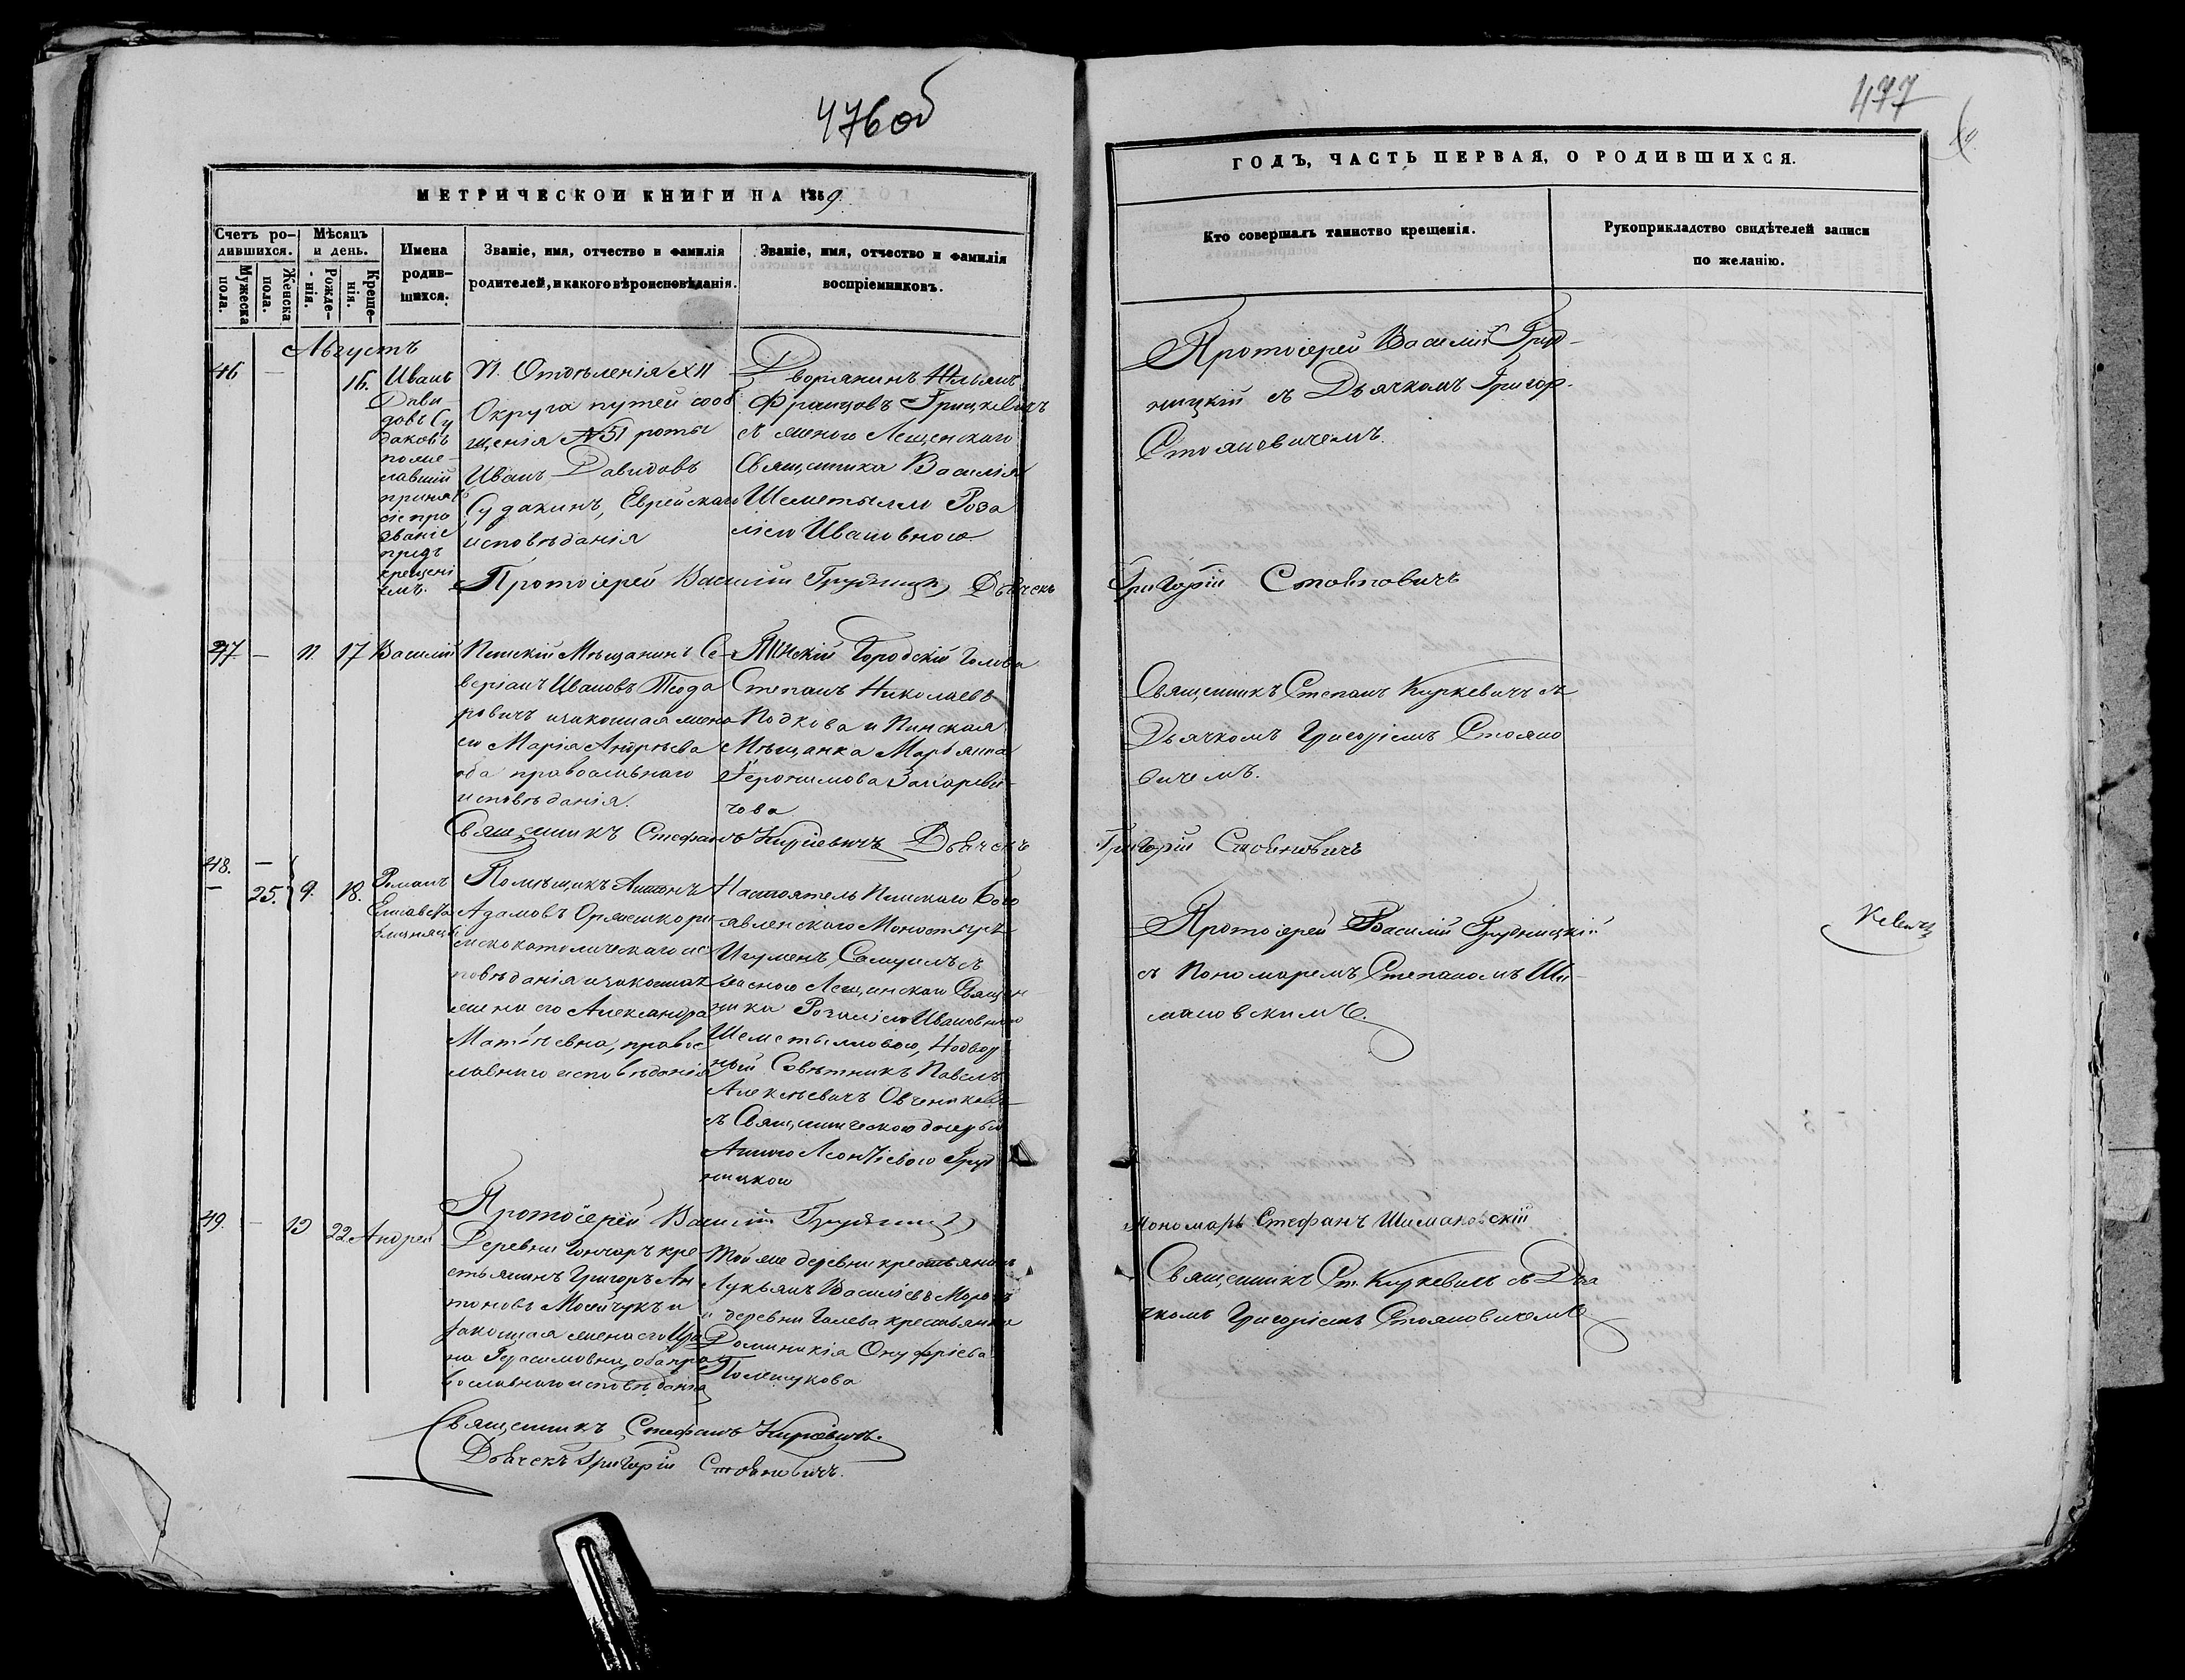 476об
МЕТРИЧЕСКОИ КНИГИ НА 1859.
Счетъ ро-
дившихся.
Мужеска
пола.
Женска
пола.
Мѣсяцъ
и день.
Рожде-
нія.
Креще-
нія.
Имена
родив-
шихся.
Званіе, имя, отчество и фамилія
родителей, и какого вѣроисповѣданія.
Званіе, имя, отчество и фамилія
воспріемниковъ.
Августъ
46 — 16.
Иванъ
Дави-
довъ Су
даковъ
поже-
лавшій
принят
сіе про
званіе
предъ
крещені
емъ.
Отдѣленія XII
Округа путей сооб
щенія №51 роты
Иванъ Давидовъ
Судакинъ, Еврейскаго
исповѣданія
Дворянинъ
Францовъ Грицкевичъ
съ женою Лещенскаго
Священника Василія
Шеметылло Роза
ліею Ивановною
Протоіерей Василій Грудницкій Дьячекъ
47 — 11. 17 Василій
Пинскій Мѣщанинъ Се-
веріанъ Ивановъ Теодо
ровичъ и законная жена
его Марія Андрѣева
оба православнаго
исповѣданія.
Пинскій Городскій Голова
Степанъ Николаевъ
Подкова и Пинская
Мѣщанка Марьянна
Іеронимова Захареви-
чова
Священникъ Стефанъ Киркевичъ Дьячекъ
48. —
— 25. 9. 18.
Романъ
Елисавета
близнецы
Помѣщикъ Антонъ
Адамовъ Оржешко ри-
мскокатолическаго ис
повѣданія и законная
жена его Александра
Матѳѣевна, право
славнаго исповѣданія
Настоятель Пинскаго Бого
явленскаго Монастыря
Игуменъ Самуилъ съ
женою Лещинскаго Священ
ника Розаліею Ивановною
Шеметылловою, Надвор
ной Совѣтникъ Павелъ
Алексѣевичъ Овчениковъ
съ Священническою дочерью
Анною Леонтіевою Груд
ницкою
Протоіерей Василій Грудницкій
49. — 19 22 Андрей
Деревни Гончаръ кре-
стьянинъ Григоръ Ан
тоновъ Мосейчукъ и
законная жена его Ири
на Герасимовна, оба пра
вославнаго исповѣданія
Той же деревни крестьянинъ
Лукьянъ Василіевъ Морозъ
и деревни Галева крестьянка
Доминикія Онуфріева
Полещукова
Священникъ Стефанъ Киркевичъ.
Дьячекъ Григорій Стояновичъ.
477
ГОДЪ, ЧАСТЬ ПЕРВАЯ, О РОДИВШИХСЯ.
Кто совершалъ таинство крещенія.
Рукоприкладство свидѣтелей записи
по желанію.
Протоіерей Василій Груд-
ницкій съ Дьячкомъ Григор.
Стояновичемъ.
Григорій Стояновичъ
Священникъ Степанъ Киркевичъ съ
Дьячкомъ Григоріемъ Стояно
вичемъ.
Григорій Стояновичъ
Протоіерей Василій Грудницкій
съ Пономаремъ Степаномъ Ши-
мановскимъ.
Пономарь Стефанъ Шимановскій
Священникъ Ст. Киркевичъ съ Дья
чкомъ Григоріемъ Стояновичемъ